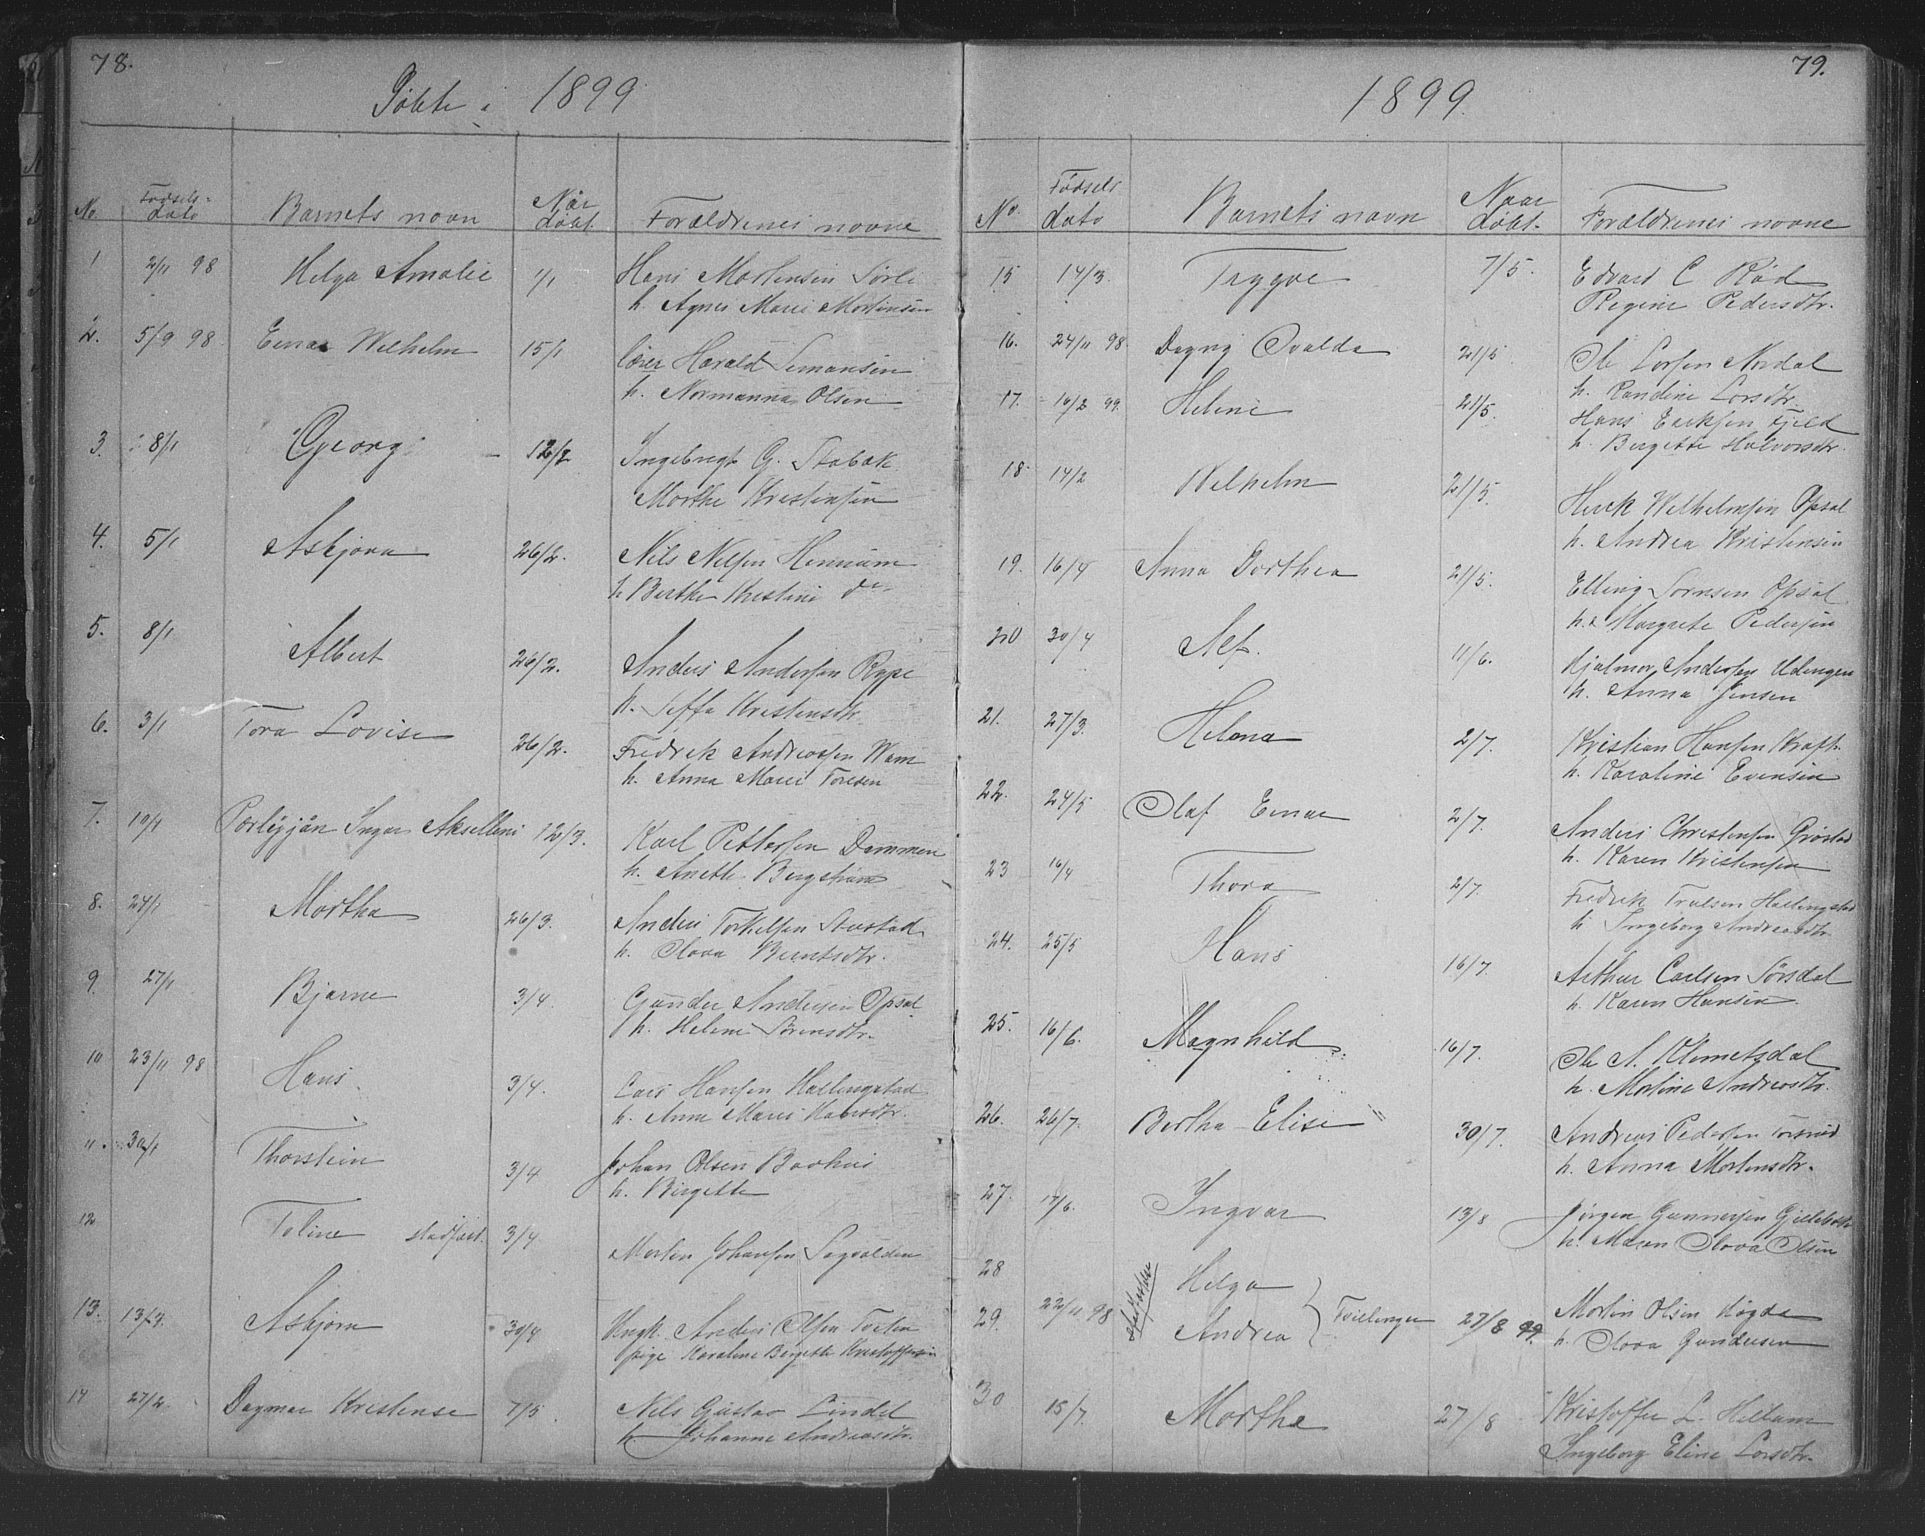 78.
Døbte i 1899
No. Fødsels-dato Barnets navn Når døbt. Forældrenes navne
1 2/11 98 Helga Amalie 1/1 Hans Mortensen Sørli
h. Agnes Marie Mortensen
2. 5/9 98 Einar Wilhelm 15/1 Lærer Harald Simonsen
h. Normanna Olsen
3. 8/1 Georg 12/2 Ingebregt G. Stabæk
Marthe Kristensen
4. 5/1 Asbjørn 26/2. Nils Nilsen Hennum
h. Berthe Kristine do
5. 8/1 Albert 26/2. Anders Andersen Rype
h. Kristensdtr.
6. 3/1 Tora Lovise 26/2. Fredrik Andreassen Wam
h. Anna Marie Toresen
7. 19/1 Ingar 12/3. Karl Pettersen Dammen
h. Anette Bergstrøm
8. 24/1 Martha 26/3. Anders Torkelsen
h. Olava Berntsdtr.
9. 27/1 Bjarne 3/4. Gunder Andersen Opsal
h. Helene Sørensdtr.
10 23/11 98 Hans. 3/4. Lars Hansen Hallingstad
h. Anne Marie Hansdtr.
11. 30/1 Thorstein 3/4 Johan Olsen Baahus
h. Birgette
12 Toline stadfæst. 3/4 Morten Johansen Sagvolden
13. 13/3. Asbjørn 30/4 Ungk. Anders Olsen
pige Karoline Birgitte Kristoffersen
14 27/2. Dagmar Kristense 7/5. Nils Gustav Lindal
h. Johanne Andreasdtr.
79.
1899.
No. Fødsels dato Barnets navn Naar døbt. Forældrenes navne
15 14/3. Trygve 7/5. Edvard C Rød
Regine Pedersdtr.
16. 24/11 98. Dagny Ovalda 21/5 Ole Larsen Nordal
h. Randine Larsdtr.
17. 16/2 99. Helene 21/5. Hans Eriksen Fjeld
h. Birgette Halvorsdtr.
18. 14/2 Wilhelm 21/5. Henrik Wilhelmsen Opsal
h. Andrea Kristensen
19. 16/4 Anna Dorthea 21/5. Elling Sørensen Opsal
h. Margrete Pedersen
20 30/4 Alf. 11/6. Hjalmar Andersen Udengen
h. Anna Jensen
21. 27/3. Helena 2/7. Kristian Hansen Kraft
h. Karoline Evensen
22. 24/5 Olaf Einar 2/7. Anders Christensen Grøstad
h. Karen Kristensen
23 16/4 Thora 2/7. Fredrik Trulsen Hallingstad
h Ingeborg Andreasdtr.
24. 25/5 Hans 16/7. Arthur Carlsen Sørsdal
h. Karen Hansen
25. 16/6. Magnhild 16/7. Ole A. Klemetsdal
h. Martine Andreasdtr.
26. 26/7. Bertha Elise 30/7. Andreas Pedersen
h. Anna Mortensdtr.
27. 17/6. Ingvar 13/8 Jørgen Gunnersen Gillebæk
h. Maren Olava Olsen
28 Helga
29. 22/11 98 Andrea Tvillinger 27/8 99. Martin Olsen Hagda
h. Olava Gundersen
30 15/7. Marthe 27/8 Kristoffer L. Hellum
Ingeborg Eline Larsdtr.